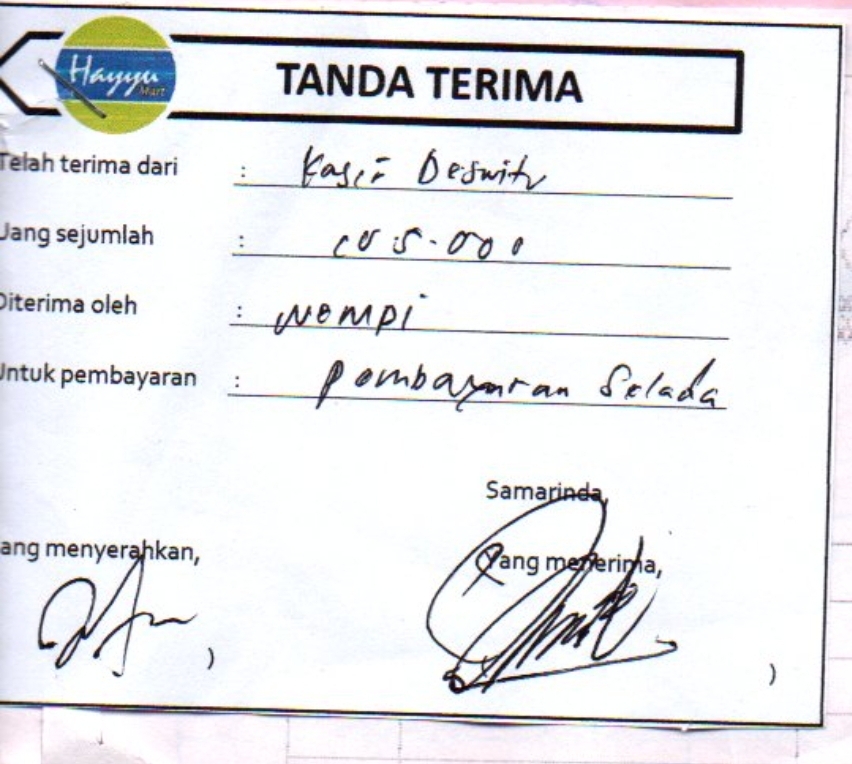 Hayyu
Mart
TANDA TERIMA
Telah terima dari : Kasir Deswita
Uang sejumlah :
Diterima oleh : Nompi
Untuk pembayaran : Pembayaran Selada
Samarinda,
ang menyerahkan,
Yang menerima,
)
)